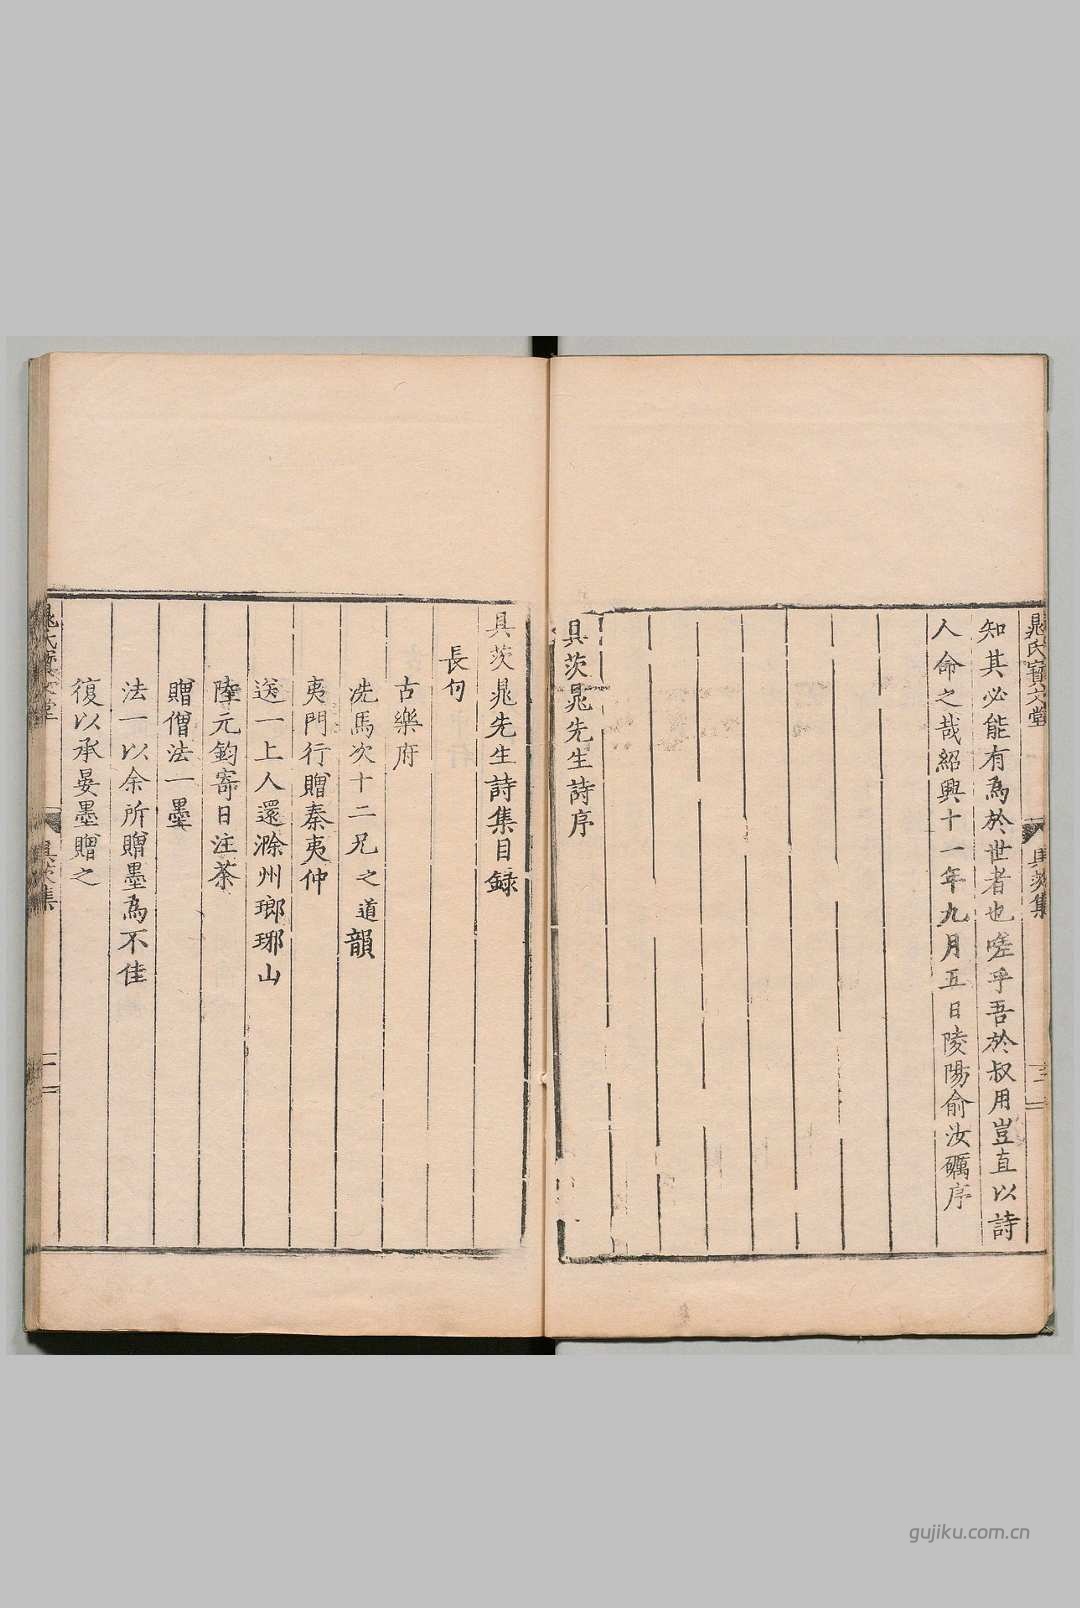 晁氏寶文堂
具茨集
知其必能有爲於世者也嗟乎吾於叔用豈直以詩
人命之哉紹興十一年九月五日陵陽俞汝礪序
具茨晁先生詩序
具茨晁先生詩集目録
長句
古樂府
洗馬次十二兄之道韻
夷門行贈秦夷仲
送一上人還滁州瑯琊山
陸元鈞寄日注茶
贈僧法一墨
法一以余所贈墨爲不佳
復以承晏墨贈之
晁氏寶文堂
具茨集
gujiku.com.cn